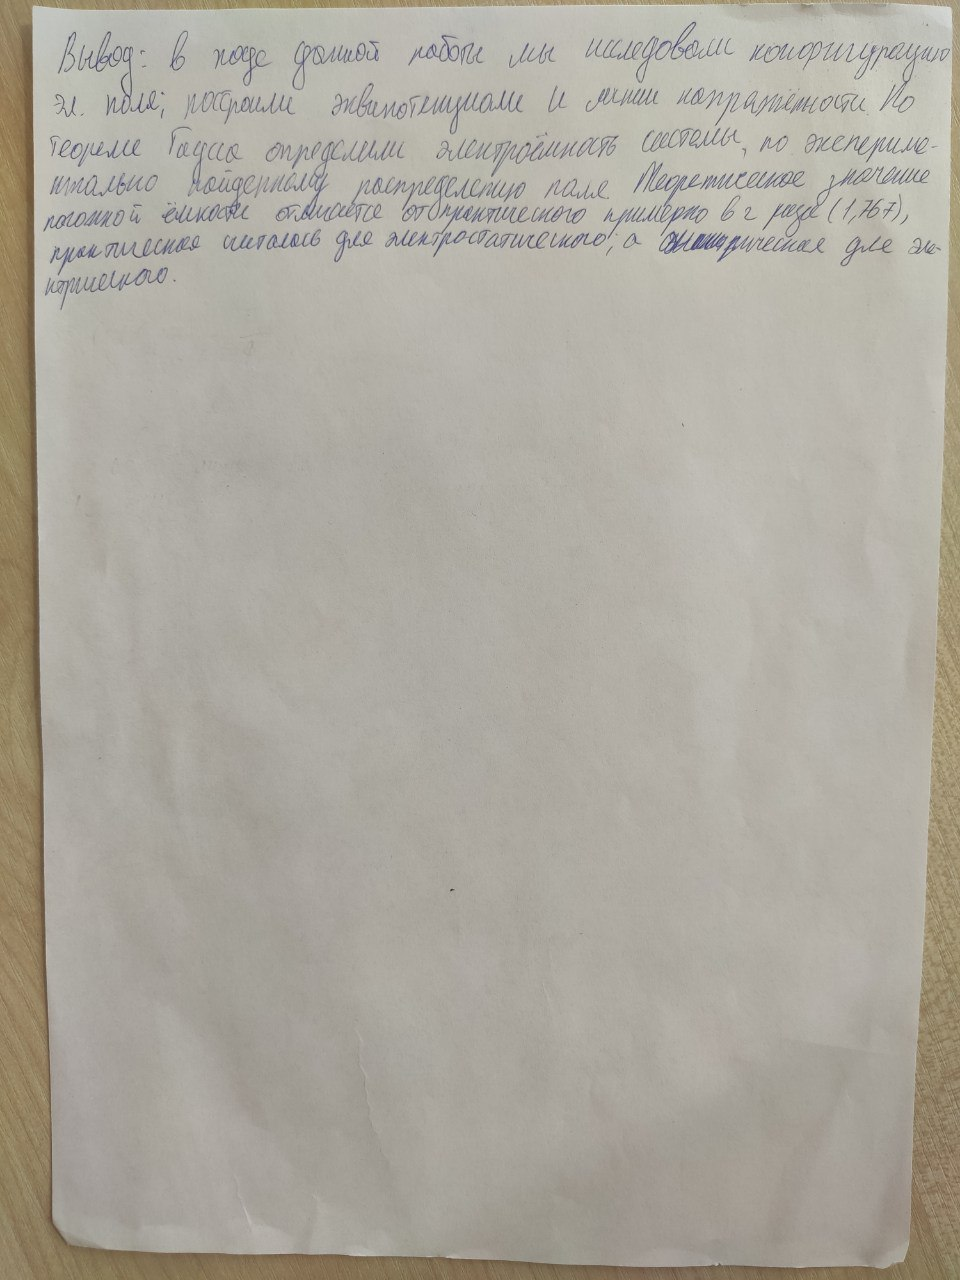 Вывод: в ходе данной работы мы исследовали конфигурацию
эл. поля; построили эквипотенциали и линии напряжённости. По
теореме Гаусса определили электроёмкость системы, по эксперимe-
нтально найденному распределению поля. Теоретическое значение
погонной ёмкости отличается от практического примерно в 2 раза (1,767),
практическая считалась для электростатического; а для эле-
ктрического.